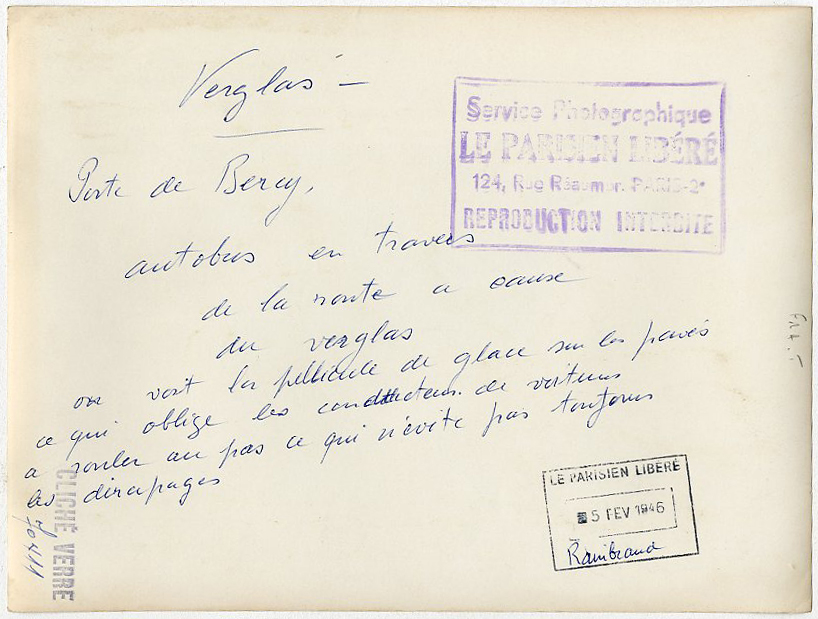 Verglas -
Service Photographique
LE PARISIEN LIBÉRÉ
124, Rue Réaumur. PARIS-2e
REPRODUCTION INTERDITE
Porte de Bercy,
autobus en travers
de la route a cause
du verglas
on voit la pellicule de glace sur les pavés
ce qui oblige les conducteurs de voitures
a rouler au pas ce qui n'évite pas toujours
les dérapages
LE PARISIEN LIBÉRÉ
5 FEV 1946
CLICHÉ VERRE